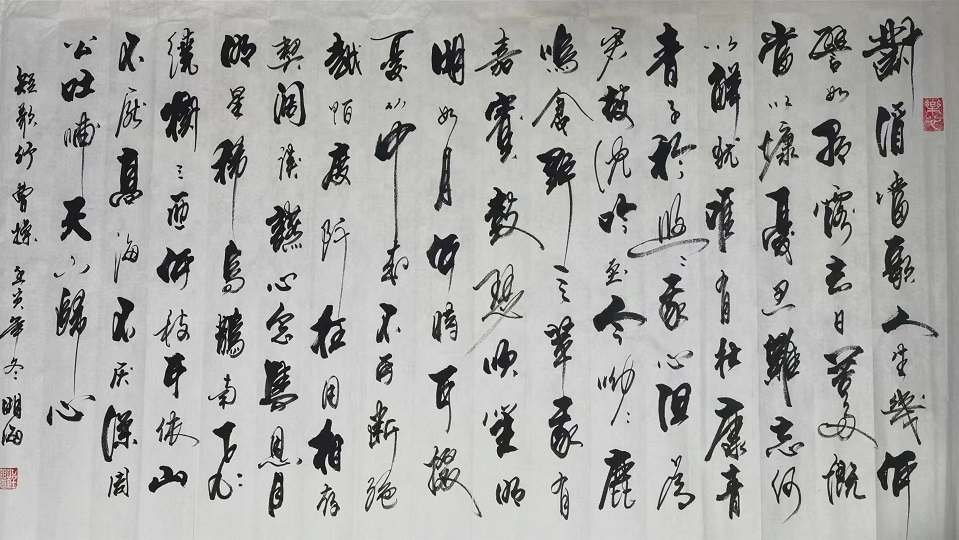 對酒當歌人生幾何
譬如朝露去日苦多慨
當以慷憂思難忘何
以解憂唯有杜康青
青子衿悠〻我心但為
君故沈吟至今呦〻鹿
鳴食野之苹我有
嘉賓鼓瑟吹笙明
明如月何時可掇
憂從中來不可斷絕
越陌度阡枉用相存
契闊談讌心念舊恩月
明星稀烏鵲南飛
繞樹三匝何枝可依山
不厭高海不厭深周
公吐哺天下歸心
短歌行曹操己亥年冬明海